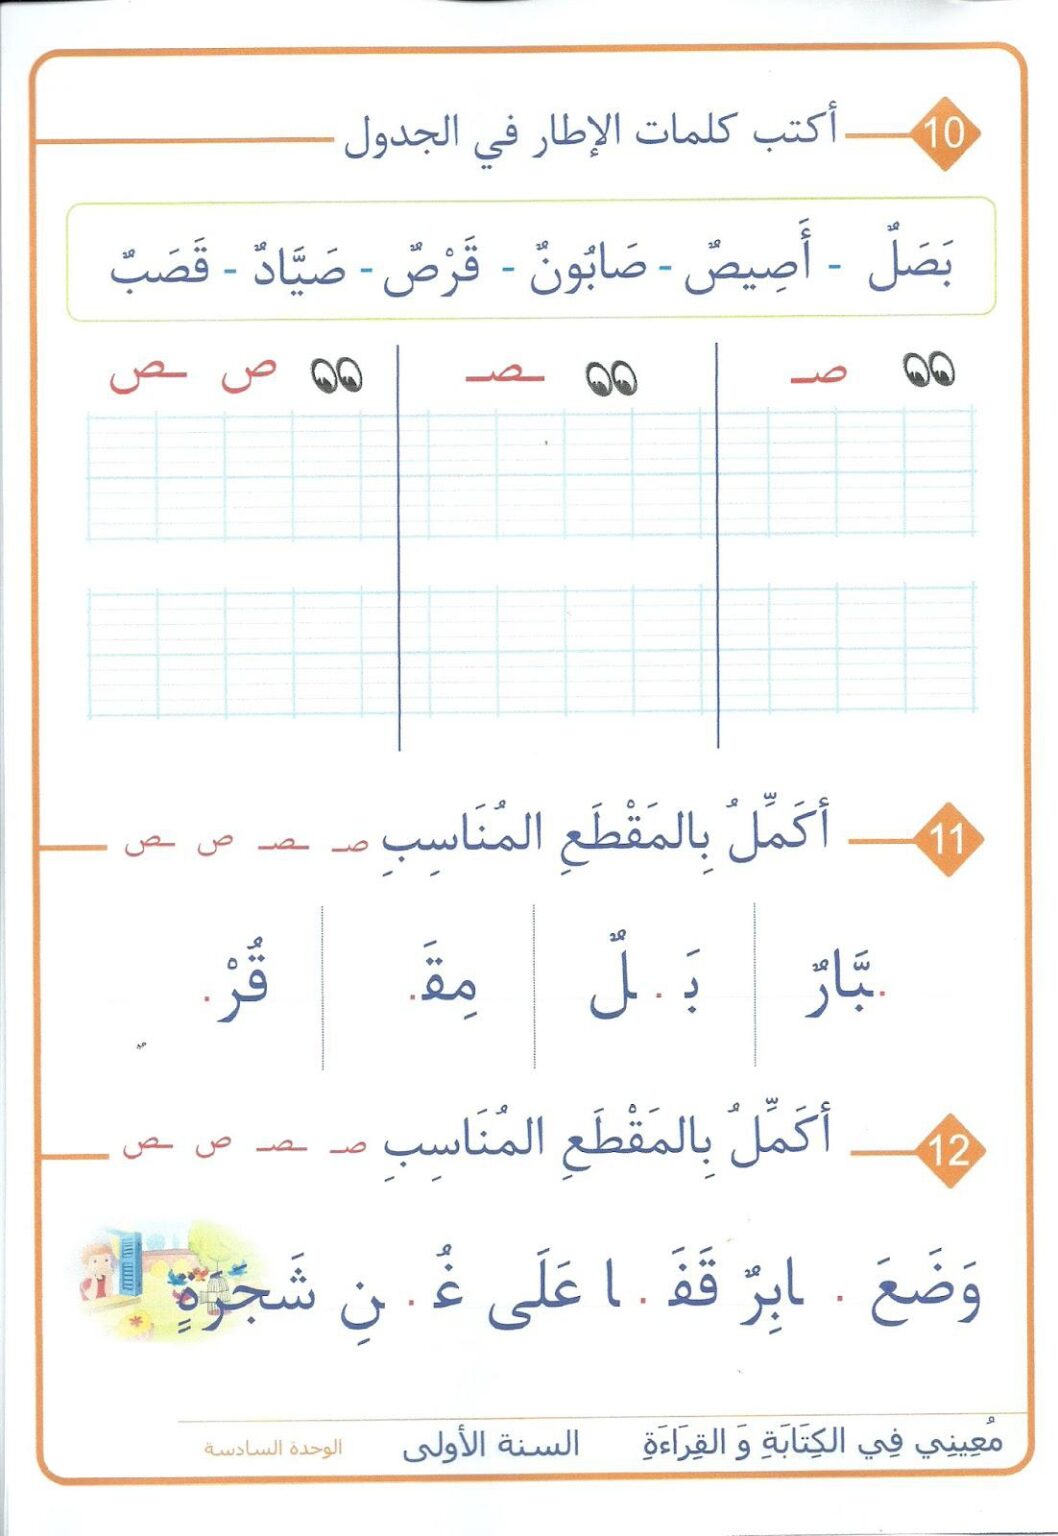 10 أكتب كلمات الإطار في الجدول
بَصَلٌ - أَصِيصٌ - صَابُونٌ - قَرْصٌ - صَيَّادٌ - قَصَبٌ
صـ ـصـ ص ـص
11 أكَمِّلُ بِالمَقْطَعِ المُنَاسِبِ صـ ـصـ ص ـص
.بَّارٌ بَـ . ـلٌ مِقَـ. قُرْ.
12 أكَمِّلُ بِالمَقْطَعِ المُنَاسِبِ صـ ـصـ ص ـص
وَضَعَ . ـابِرٌ قَفَـ . ـا عَلَى غُـ . ـنِ شَجرَةٍ
مُعِينِي فِي الكِتَابَةِ وَ القِرَاءَةِ السنة الأولى الوحدة السادسة